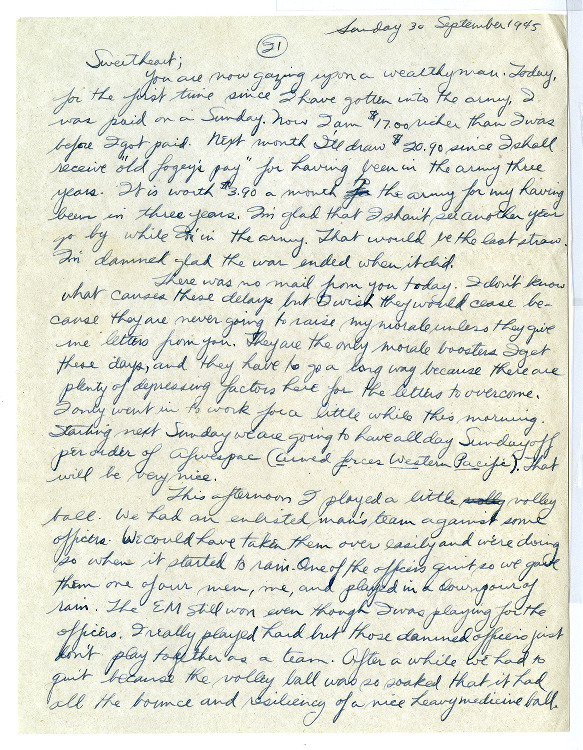 Sunday 30 September 1945
21
Sweetheart;
You are now gazing upon a wealthy man. Today,
for the first time since I have gotten into the army, I
was paid on a Sunday. Now I am $17.00 richer than I was
before I got paid. Next month I'll draw $20.90 since I shall
receive "old fogey's pay" for having been in the army three
years. It is worth $3.90 a month to the army for my having
been in three years. I'm glad that I shan't see another year
go by while I'm in the army. That would be the last straw.
I'm damned glad the war ended when it did.
There was no mail from you today. I don't know
what causes these delays but I wish they would cease be-
cause they are never going to raise my morale unless they give
me letters from you. They are the only morale boosters I get
these days, and they have to go a long way because there are
plenty of depressing factors here for the letters to overcome.
I only went in to work for a little while this morning.
Starting next Sunday we are going to have all day Sunday off
per order of Afwespac (armed forces Western Pacific). That
will be very nice.
This afternoon I played a little volley
ball. We had an enlisted man's team against some
officers. We could have taken them over easily and were doing
so when it started to rain. One of the officers quit so we gave
them one of our men, me, and played in a downpour of
rain. The EM still won even though I was playing for the
officers. I really played hard but those damned officers just
don't play together as a team. After a while we had to
quit because the volley ball was so soaked that it had
all the bounce and resiliency of a nice heavy medicine ball.